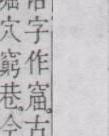 字作窟古
穴窮巷今